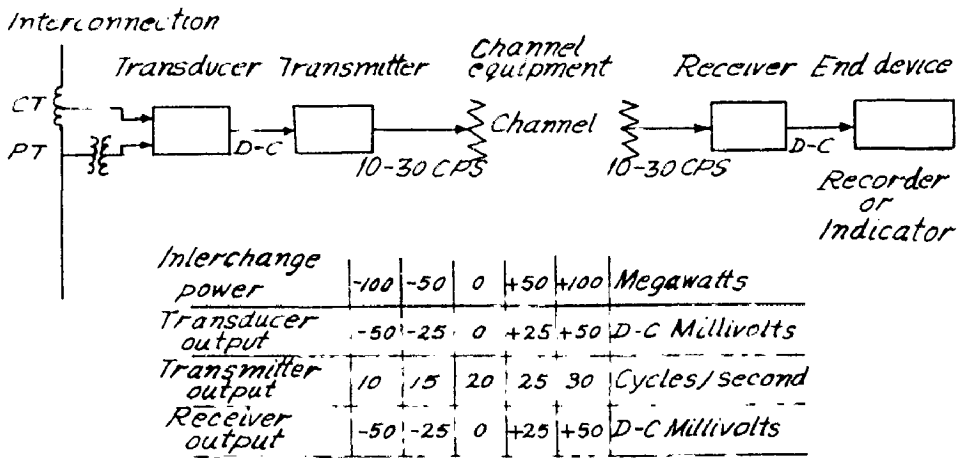 Interconnection
Transducer Transmitter Channel equipment Receiver End device
CT
PT
D-C
10-30 CPS
Channel
10-30 CPS
D-C
Recorder
or
Indicator
Interchange power -100 -50 0 +50 +100 Megawatts
Transducer output -50 -25 0 +25 +50 D-C Millivolts
Transmitter output 10 15 20 25 30 Cycles/second
Receiver output -50 -25 0 +25 +50 D-C Millivolts